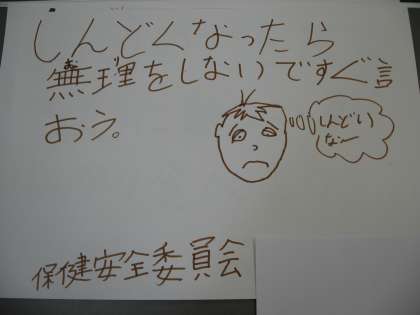 しんどくなったら
無理をしないですぐ言
おう。
しんどい
なー
保健安全委員会